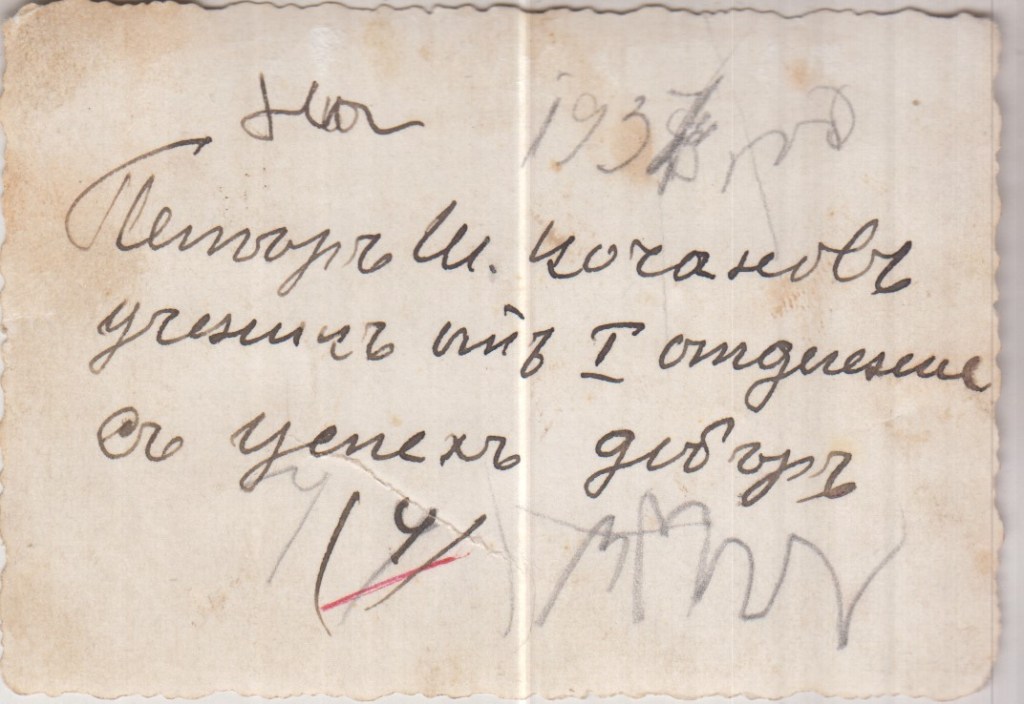 На
Петъръ Ш. Кочановъ
ученикъ отъ I отделение
съ успехъ добъръ
(4)